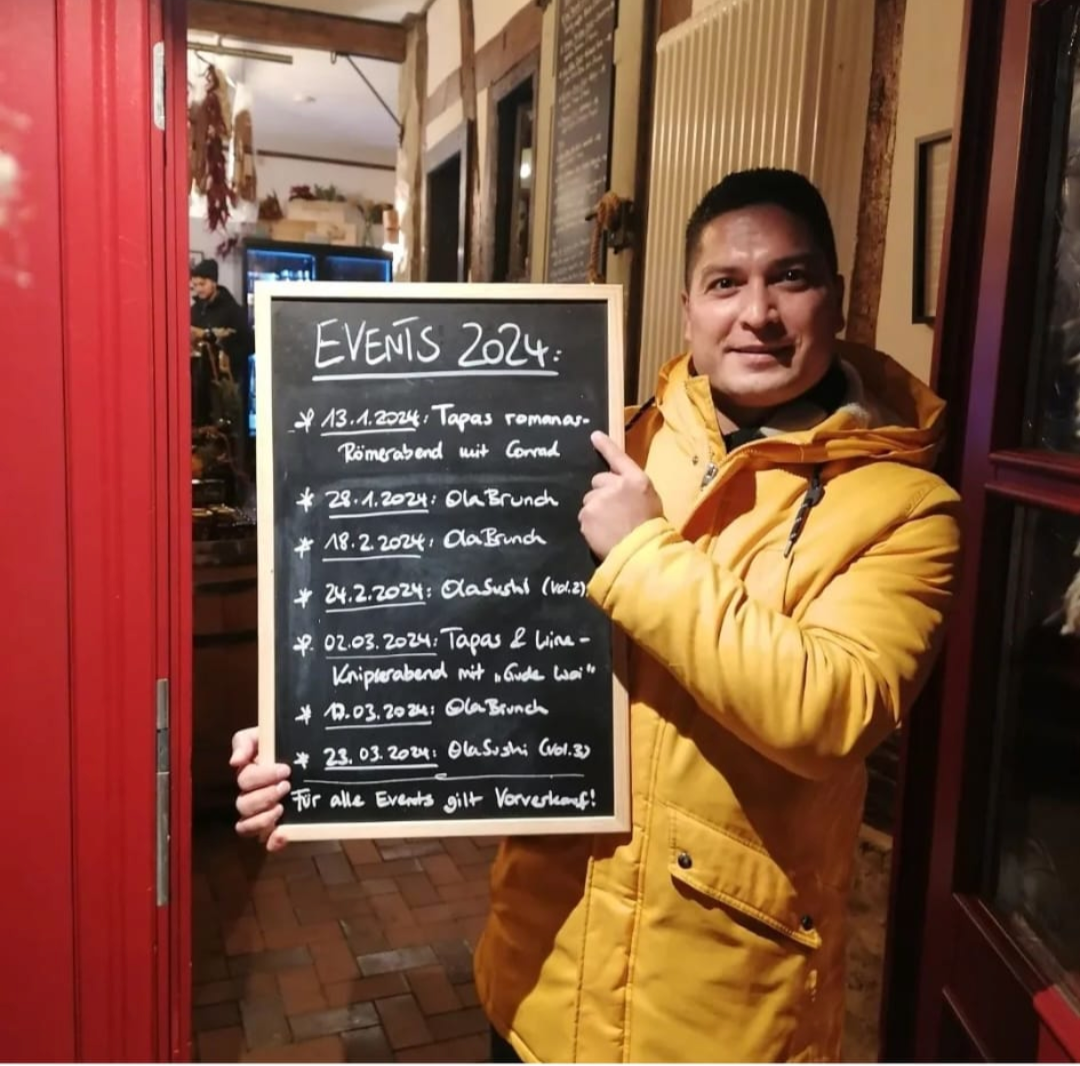 EVENTS 2024:
* 13.1.2024: Tapas romanas-
Römerabend mit Conrad
* 28.1.2024: OlaBrunch
* 18.2.2024: OlaBrunch
* 24.2.2024: OlaSushi (Vol.2)
* 02.03.2024: Tapas & Wine-
Knipserabend mit „Gude Woi“
* .03.2024: OlaBrunch
* 23.03.2024: OlaSushi (Vol.3)
Für alle Events gilt Vorverkauf!